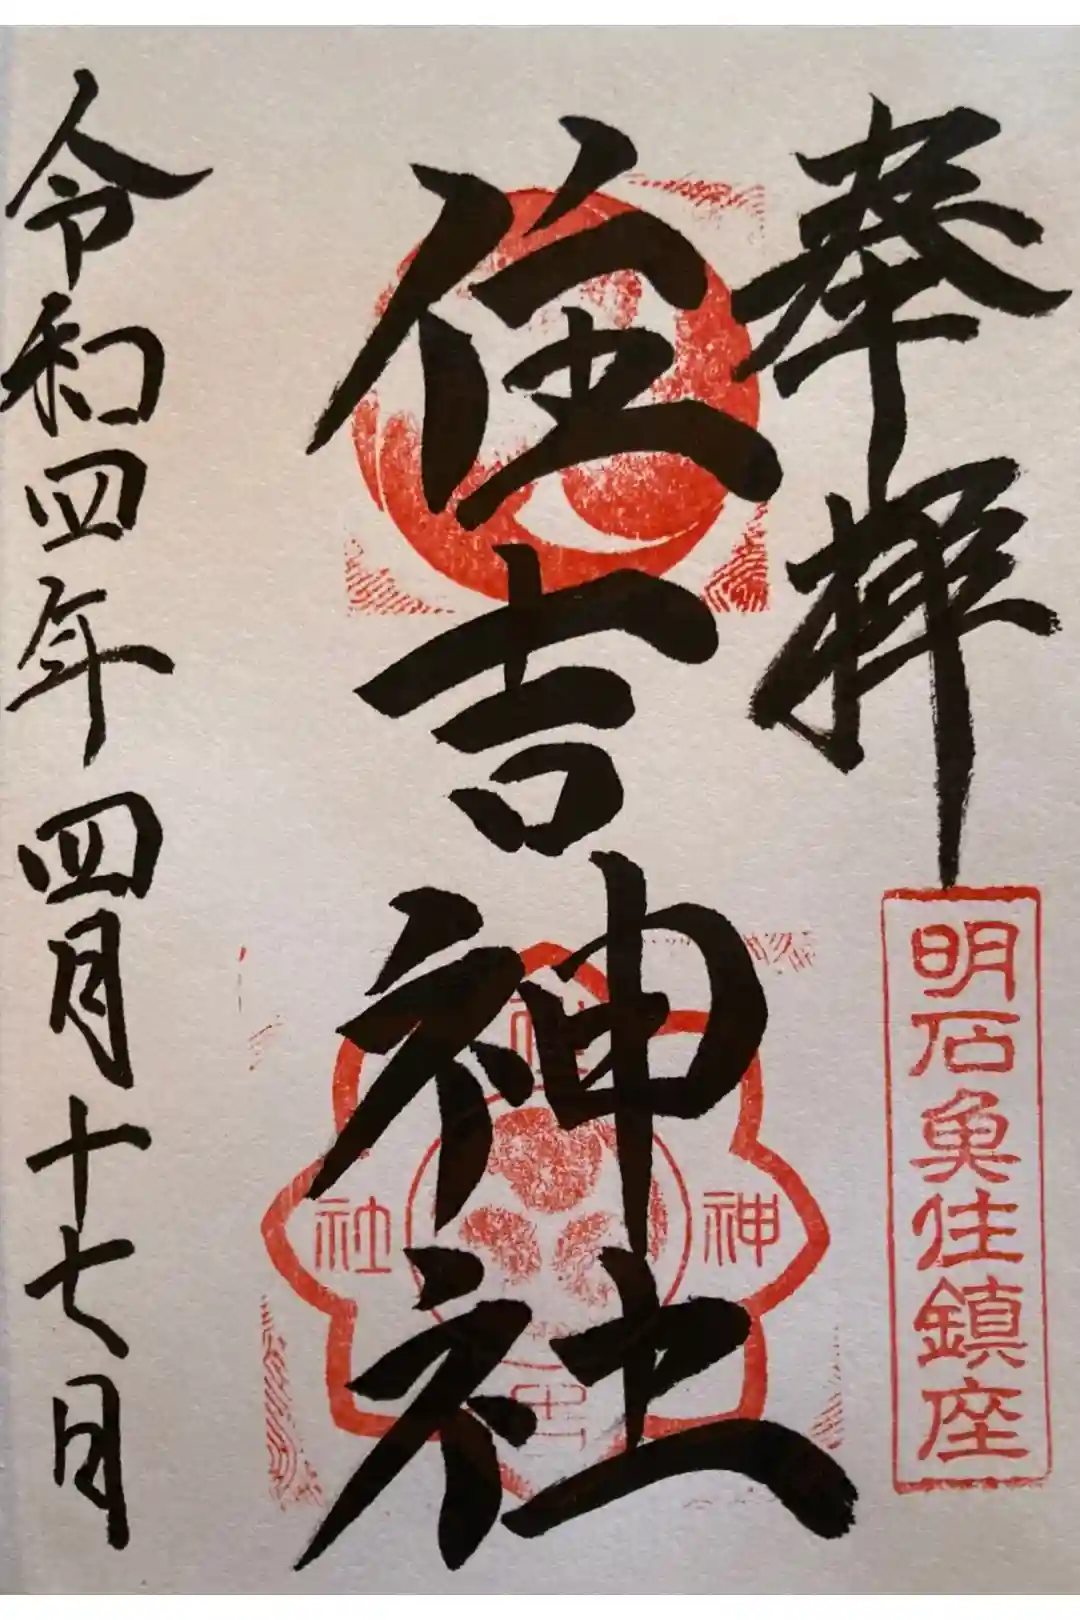 奉拝
明石魚住鎮座
住吉神社
住吉神社
令和四年四月十七日